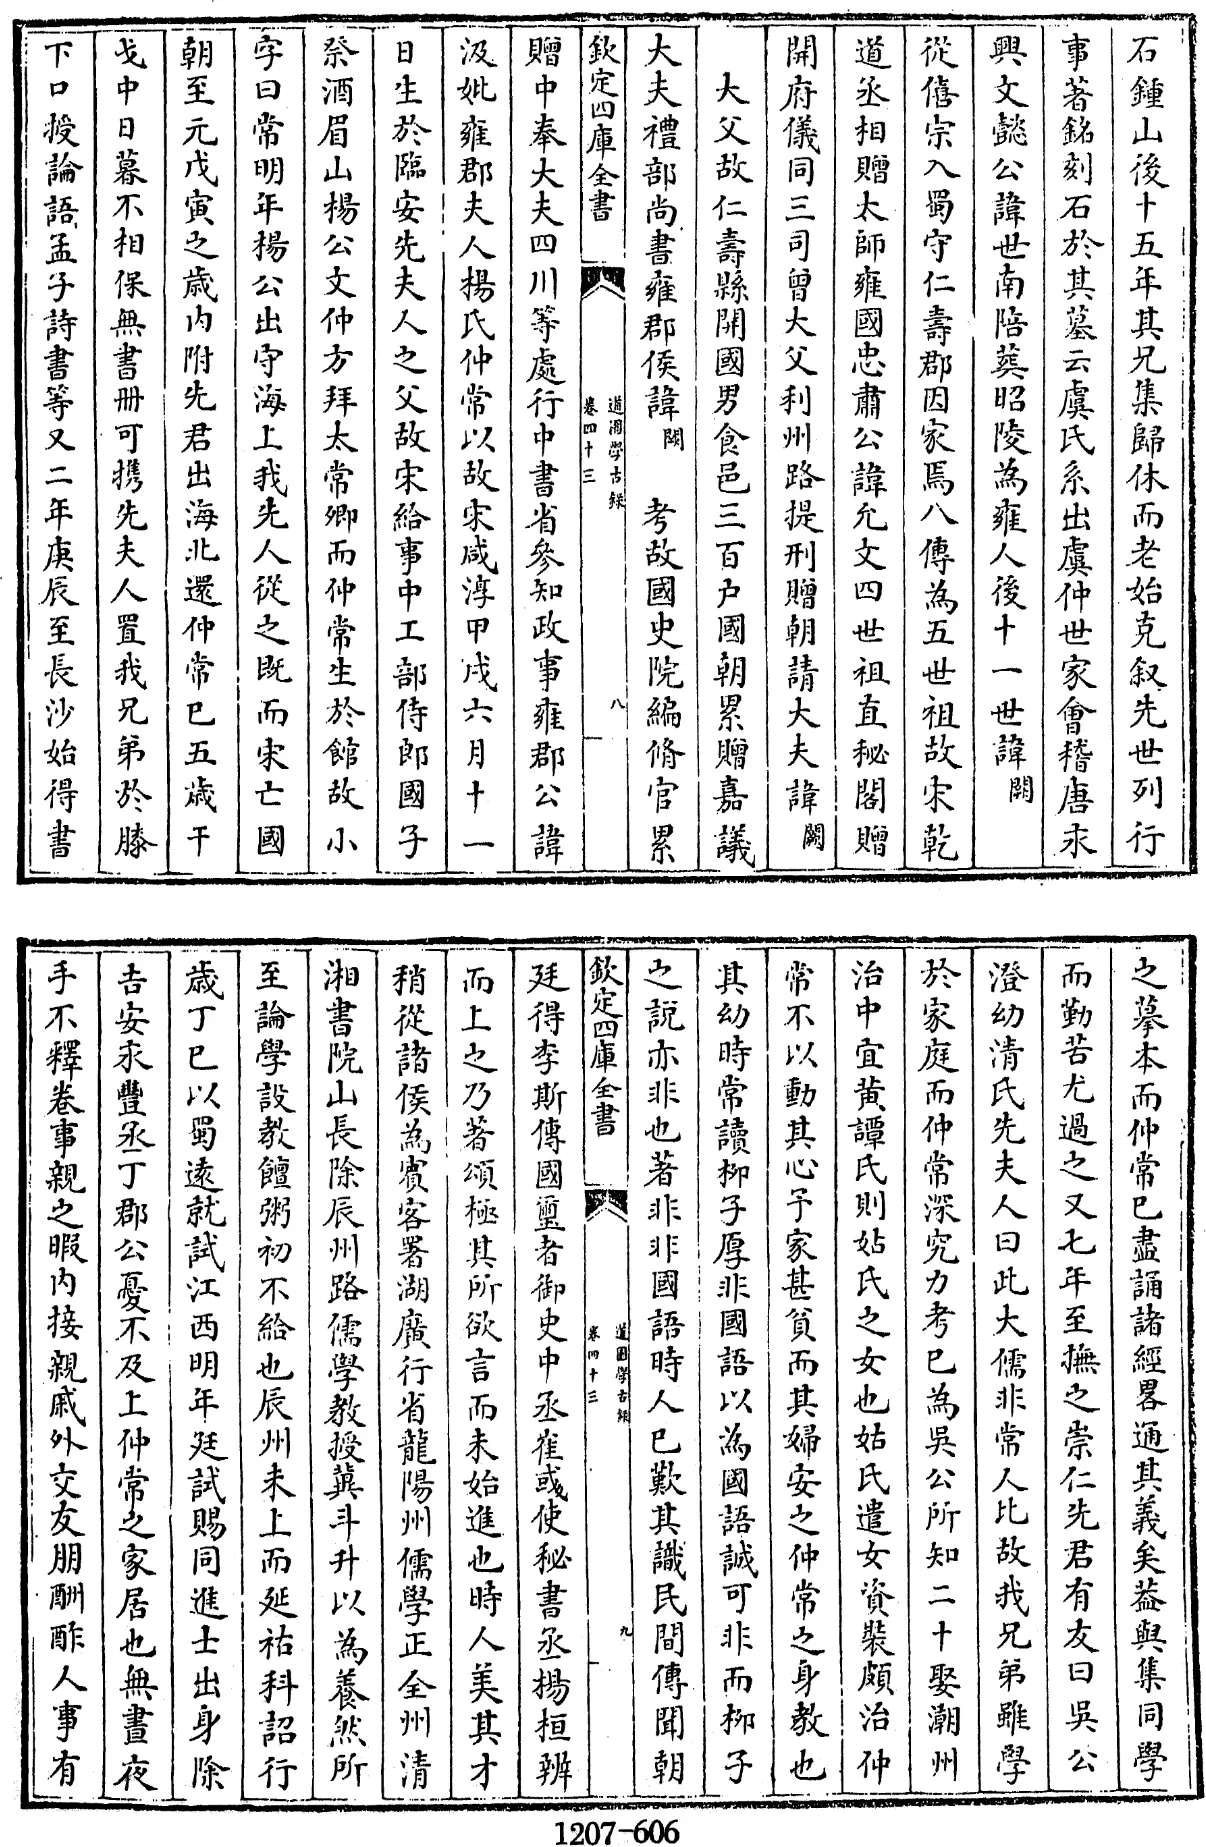 石鍾山後十五年其兄集歸休而老始克叙先世列行
事著銘刻石於其墓云虞氏系出虞仲世家會稽唐永
興文懿公諱世南陪葬昭陵為雍人後十一世諱闕
從僖宗入蜀守仁壽郡因家焉八傳為五世祖故宋乾
道丞相贈太師雍國忠肅公諱允文四世祖直秘閣贈
開府儀同三司曾大父利州路提刑贈朝請大夫諱闕
大父故仁壽縣開國男食邑三百戶國朝累贈嘉議
大夫禮部尚書雍郡侯諱闕 考故國史院編脩官累
欽定四庫全書
道園學古録
卷四十三
八
贈中奉大夫四川等處行中書省參知政事雍郡公諱
汲妣雍郡夫人楊氏仲常以故宋咸淳甲戌六月十一
日生於臨安先夫人之父故宋給事中工部侍郎國子
祭酒眉山楊公文仲方拜太常卿而仲常生於館故小
字曰常明年楊公出守海上我先人從之既而宋亡國
朝至元戊寅之歲内附先君出海北還仲常已五歲干
戈中日暮不相保無書冊可携先夫人置我兄弟於膝
下口授論語孟子詩書等又二年庚辰至長沙始得書
之摹本而仲常已盡誦諸經畧通其義矣葢與集同學
而勤苦尤過之又七年至撫之崇仁先君有友曰吳公
澄幼清氏先夫人曰此大儒非常人比故我兄弟雖學
於家庭而仲常深究力考已為吳公所知二十娶潮州
治中宜黃譚氏則姑氏之女也姑氏遣女資裝頗治仲
常不以動其心予家甚貧而其婦安之仲常之身教也
其幼時常讀柳子厚非國語以為國語誠可非而柳子
之說亦非也著非非國語時人已歎其識民間傳聞朝
欽定四庫全書
道園學古録
卷四十三
九
廷得李斯傳國璽者御史中丞崔彧使秘書丞楊桓辨
而上之乃著頌極其所欲言而未始進也時人美其才
稍從諸侯為賓客署湖廣行省龍陽州儒學正全州清
湘書院山長除辰州路儒學教授冀斗升以為養然所
至論學設教饘粥初不給也辰州未上而延祐科詔行
歲丁巳以蜀遠就試江西明年廷試賜同進士出身除
吉安永豐丞丁郡公憂不及上仲常之家居也無晝夜
手不釋卷事親之暇内接親戚外交友朋酬酢人事有
1207-606